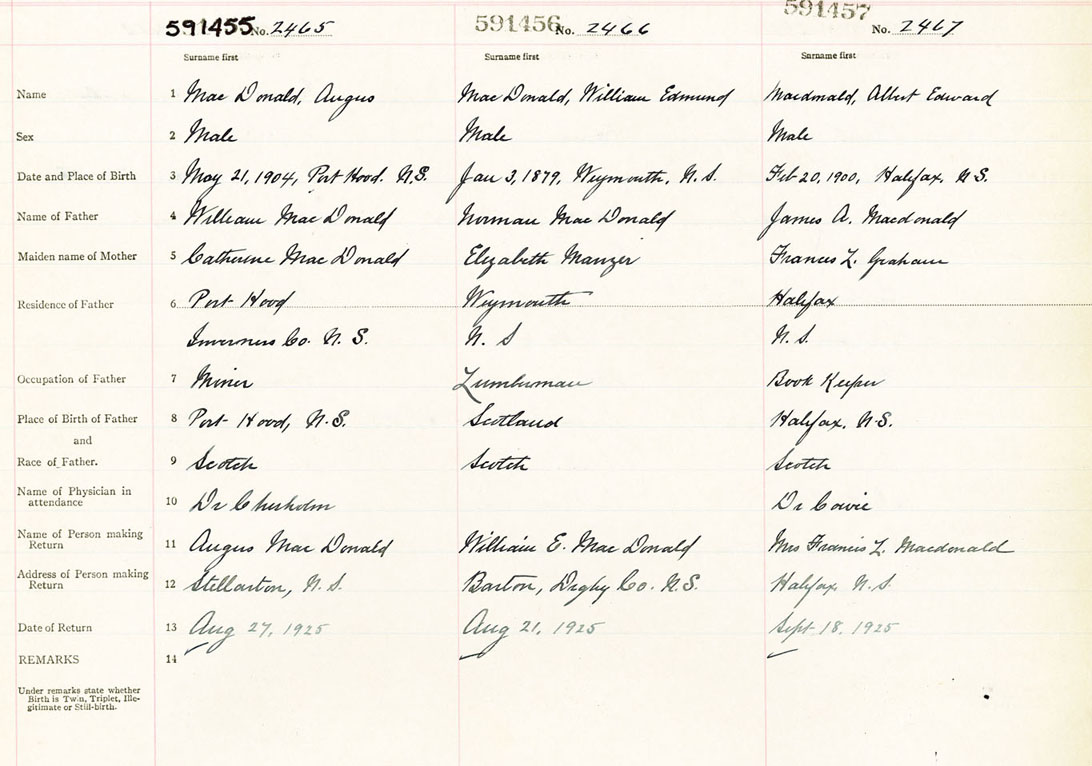 591455 No. 2465 591456 No. 2466 591457 No. 2467
Surname first Surname first Surname first
Name 1 Mac Donald, Angus Mac Donald, William Edmund Macdonald, Albert Edward
Sex 2 Male Male Male
Date and Place of Birth 3 May 21, 1904, Port Hood. N.S. Jan 3, 1879, Weymouth, N.S. Feb 20, 1900, Halifax, N.S.
Name of Father 4 William Mac Donald Norman Mac Donald James A. Macdonald
Maiden name of Mother 5 Catherine Mac Donald Elizabeth Manzer Frances L. Graham
Residence of Father 6 Port Hood Weymouth Halifax
Inverness Co. N.S. N.S N.S.
Occupation of Father 7 Miner Lumberman Book Keeper
Place of Birth of Father 8 Port Hood, N.S. Scotland Halifax, N.S.
and
Race of Father. 9 Scotch Scotch Scotch
Name of Physician in
attendance 10 Dr Chisholm Dr Cowie
Name of Person making
Return 11 Angus Mac Donald William E. Mac Donald Mrs Francis L. Macdonald
Address of Person making
Return 12 Stellarton, N.S. Barton, Digby Co. N.S. Halifax, N.S.
Date of Return 13 Aug 27, 1925 Aug 21, 1925 Sept 18, 1925
REMARKS 14
Under remarks state whether
Birth is Twin, Triplet, Ille-
gitimate or Still-birth.